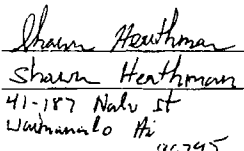 Shawn Heathman
Shawn Heathman
41-187 Nalu st
Waimanalo Hi
96795